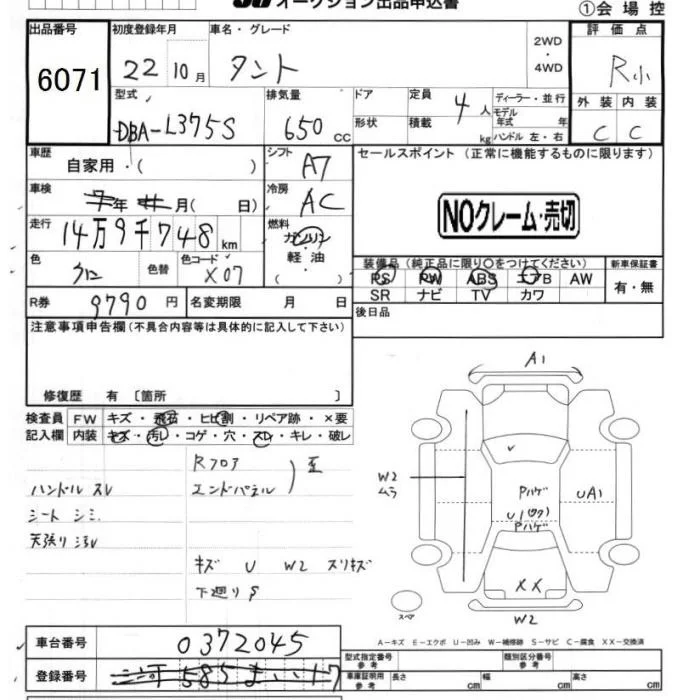 オークション出品申込書
①会場控
出品番号
6071
初度登録年月
22 10月
車名・グレード
タント
2WD
・
4WD
評価点
R小
型式
DBA-L375S
排気量
650 cc
ドア
形状
定員 4人
積載 kg
ディーラー・並行
モデル年式 年
ハンドル 左・右
外装 内装
C C
車歴
自家用・( )
シフト
A7
車検
年 月( 日)
冷房
AC
走行
14万9千748km
燃料
ガソリン
軽・油
( )
色
クロ
色替
色コード
X07
R券 9790円
名変期限 月 日
セールスポイント(正常に機能するものに限ります)
NOクレーム・売切
装備品(純正品に限り〇をつけてください)
PS PW ABS エアB AW
SR ナビ TV カワ
新車保証書
有・無
後日品
注意事項申告欄(不具合内容等は具体的に記入して下さい)
修復歴 有〔箇所 〕
検査員記入欄
FW キズ・飛石・ヒビ割・リペア跡・×要
内装 キズ・汚レ・コゲ・穴・スレ・キレ・破レ
Rフロア
エンドパネル
ハンドル スレ
シート シミ
キズ U W2 スリキズ
下廻りS
A1
W2
ムラ
Pハゲ
U1
Pハゲ
UA1
XX
W2
スペア
A-キズ E-エクボ U-凹み W-補修跡 S-サビ C-腐食 XX-交換済
車台番号
0372045
登録番号
型式指定番号
参考
類別区分番号
参考
車庫証明用
参考
長さ cm 幅 cm 高さ cm